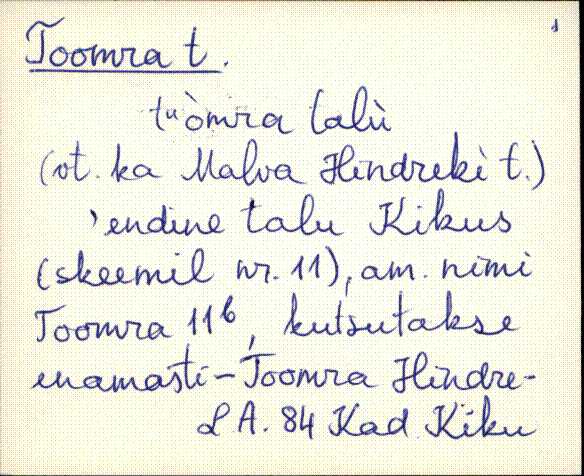 1
Toomra t.
tuòmra talù
(vt. ka Malva Hindrekì t.)
'endine talu Kikus
(skeemil nr. 11), am. nimi
Toomra 11b, kutsutakse
enamasti – Toomra Hindre-
LA. 84 Kad Kiku